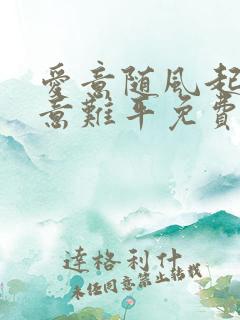 愛意随風起
意難平免費
達格利什
未經同意禁止轉載